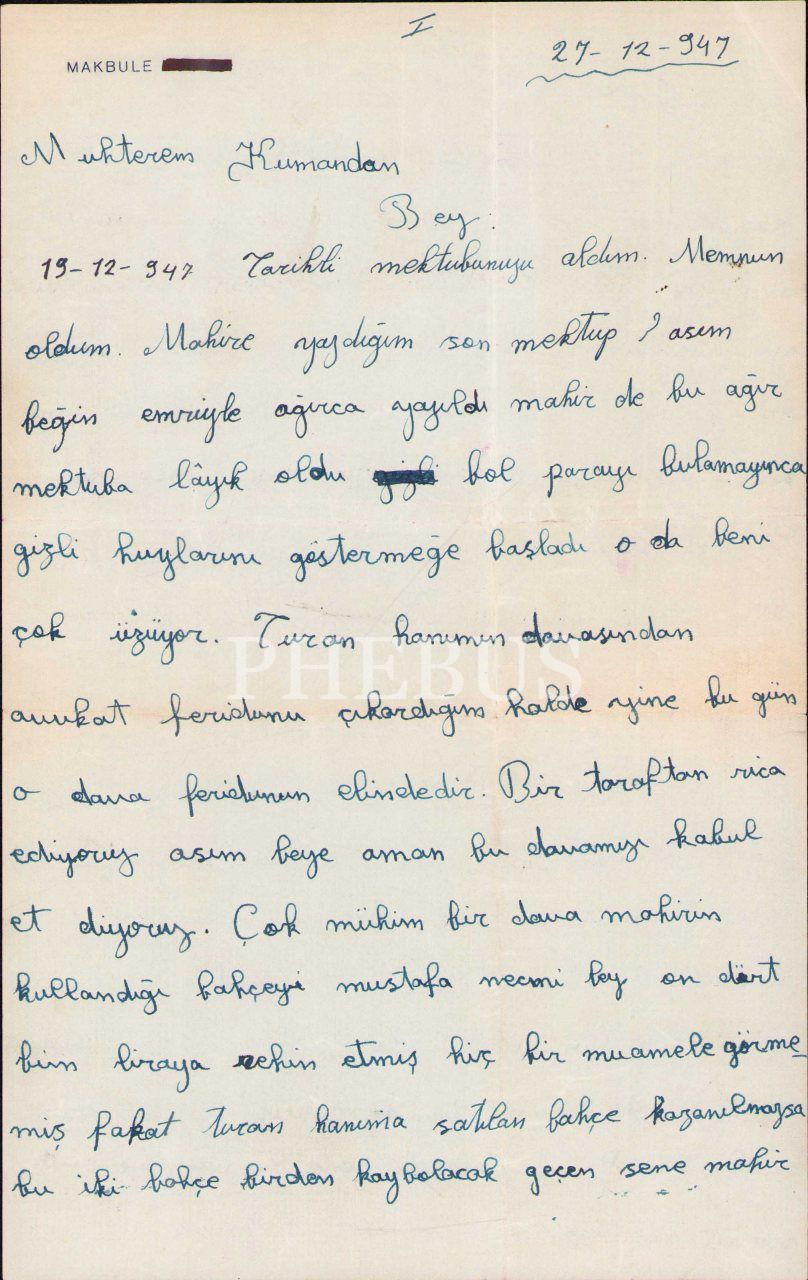 I
MAKBULE
27-12-947
Muhterem Kumandan
Bey:
19-12-947 Tarihli mektubunuzu aldım. Memnun
oldum. Mahire yazdığım son mektup ? asım
beğin emriyle ağırca yazıldı mahir de bu ağır
mektuba lâyık oldu bol parayı bulamayınca
gizli huylarını göstermeğe başladı o da beni
çok üzüyor. Turan hanımın davasından
PHEBUS
avukat feridunu çıkardığım halde yine bu gün
o dava feridunun elindedir. Bir taraftan rica
ediyoruz asım beye aman bu davamızı kabul
et diyoruz. Çok mühim bir dava mahirin
kullandığı bahçeyi mustafa necmi bey on dört
bin liraya rehin etmiş hiç bir muamele görme-
miş fakat turan hanıma satılan bahçe kazanılmazsa
bu iki bahçe birden kaybolacak geçen sene mahir